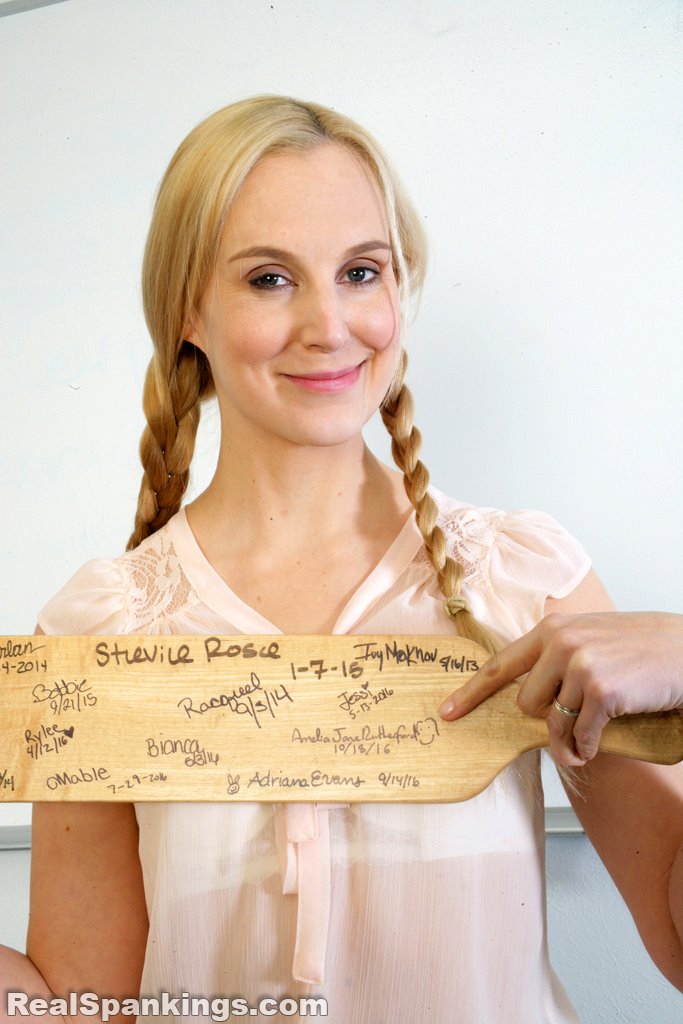 4-2014
Stevie Rose
1-7-15
Ivy
9/16/13
Bobbie
9/21/15
Racquel
9/3/14
Jessi
5-13-2016
Rylee
4/12/16
Bianca
Amelia Jane Rutherford
10/18/16
Mable
7-29-2016
Adriana Evans
9/14/16
RealSpankings.com